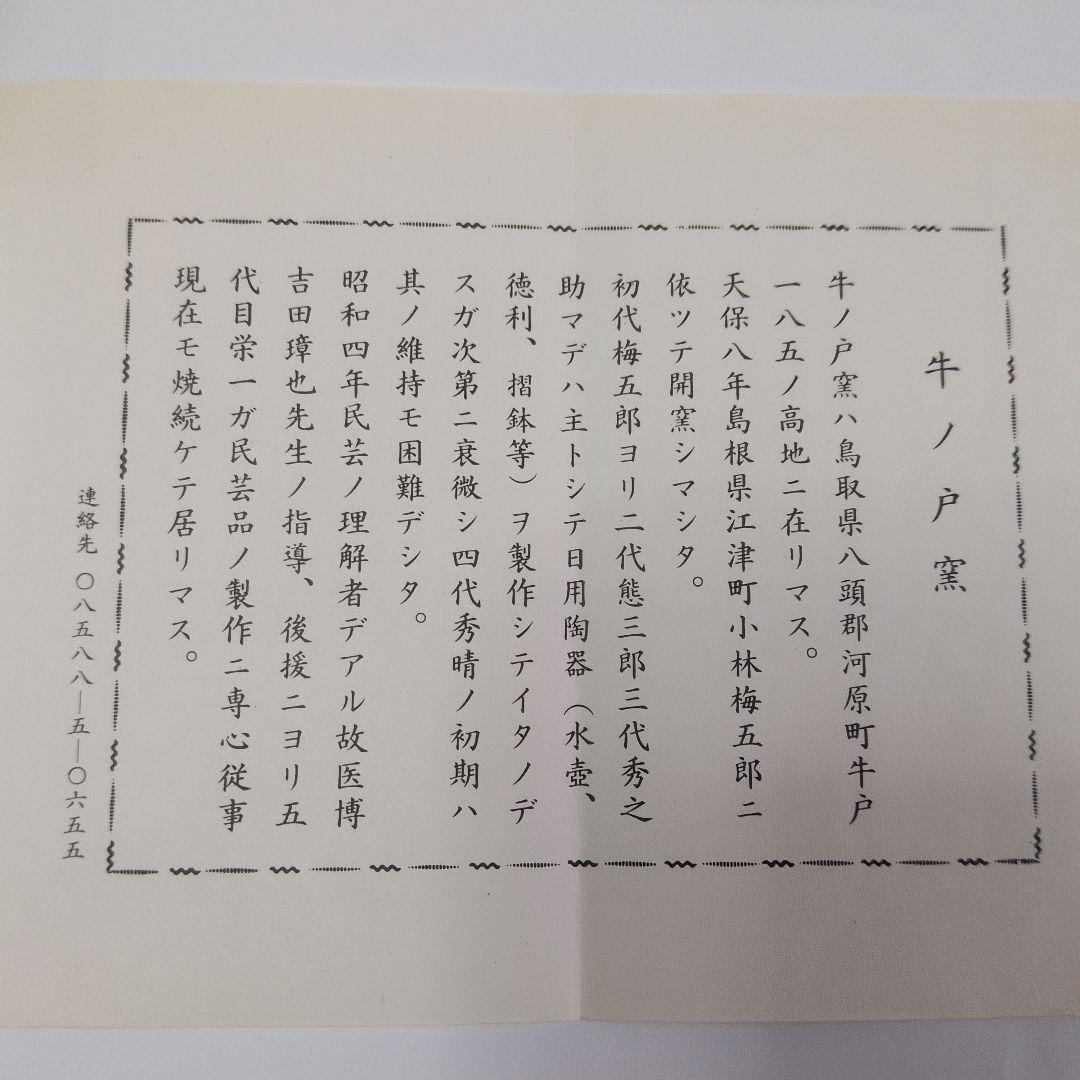 牛ノ戸窯
牛ノ戸窯ハ鳥取県八頭郡河原町牛戸
一八五ノ高地ニ在リマス。
天保八年島根県江津町小林梅五郎ニ
依ツテ開窯シマシタ。
初代梅五郎ヨリ二代態三郎三代秀之
助マデハ主トシテ日用陶器（水壺、
徳利、摺鉢等）ヲ製作シテイタノデ
スガ次第ニ衰微シ四代秀晴ノ初期ハ
其ノ維持モ困難デシタ。
昭和四年民芸ノ理解者デアル故医博
吉田璋也先生ノ指導、後援ニヨリ五
代目栄一ガ民芸品ノ製作ニ専心従事
現在モ焼続ケテ居リマス。
連絡先 〇八五八八―五―〇六五五